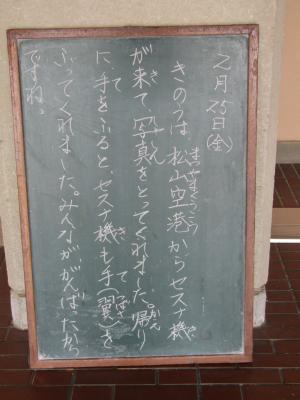 2月25日(金)
きのうは松山空港からセスナ機
が来て、写真をとってくれました。帰り
に手をふると、セスナ機も手(翼)を
ふってくれました。みんながんばったから
ですね。